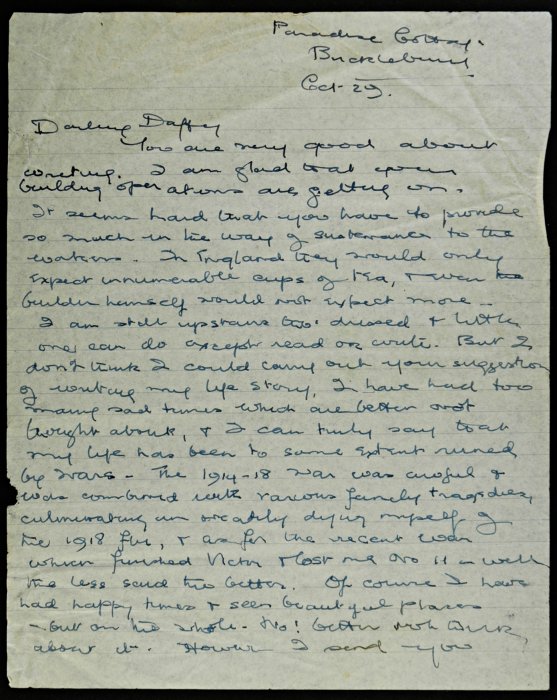 Paradise Cottage.
Bucklebury
Oct- 29.
Darling Daffy
You are very good about
writing. I am glad that your
building operations are getting on.
It seems hard that you have to provide
so much in the way of sustenance to the
workers. In England they would only
expect innumerable cups of tea, & even the
builder himself would not expect more -
I am still upstairs tho' dressed & little
one can do except read or write. But I
don't think I could carry out your suggestion
of writing my life story, I have had too
many sad times which are better not
thought about, & I can truly say that
my life has been to some extent ruined
by wars - The 1914-18 war was awful &
was combined with various family tragedies,
culminating in nearly dying myself of
the 1918 flu, & as for the recent war
which finished Victor & lost me No 11 - well
the less said the better. Of course I have
had happy times & seen beautiful places
- but on the whole - No! better not
about it. However I send you